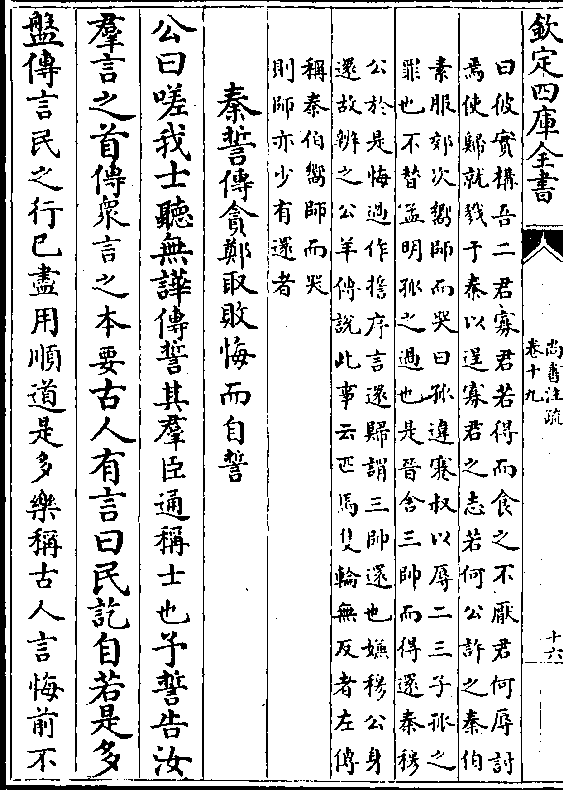 欽定四庫全書
尚書注疏
卷十九
十六
曰彼實構吾二君寡君若得而食之不厭君何辱討
焉使歸就戮于秦以逞寡君之志若何公許之秦伯
素服郊次嚮師而哭曰孤違蹇叔以辱二三子孤之
罪也不替孟明孤之過也是晉舍三帥而得還秦穆
公於是悔過作誓序言還歸謂三帥還也嫌穆公身
還故辨之公羊傳說此事云匹馬隻輪無反者左傳
稱秦伯嚮師而哭
則師亦少有還者
秦誓傳貪鄭取敗悔而自誓
公曰嗟我士聽無譁傳誓其羣臣通稱士也予誓告汝
羣言之首傳衆言之本要古人有言曰民訖自若是多
盤傳言民之行已盡用順道是多樂稱古人言悔前不